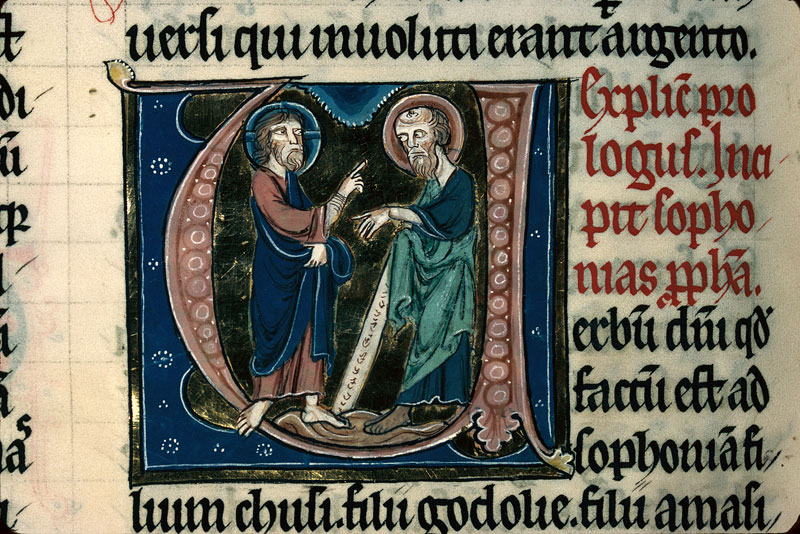 uersi qui inuoluti erant argento.
Explic̄ pro
logus. Inci
pit sopho
nias ꝓph̄a.
erbū dn̄i qd̄
factū est ad
sophoniā fi
lium chusi. filii godolie. filii amasi